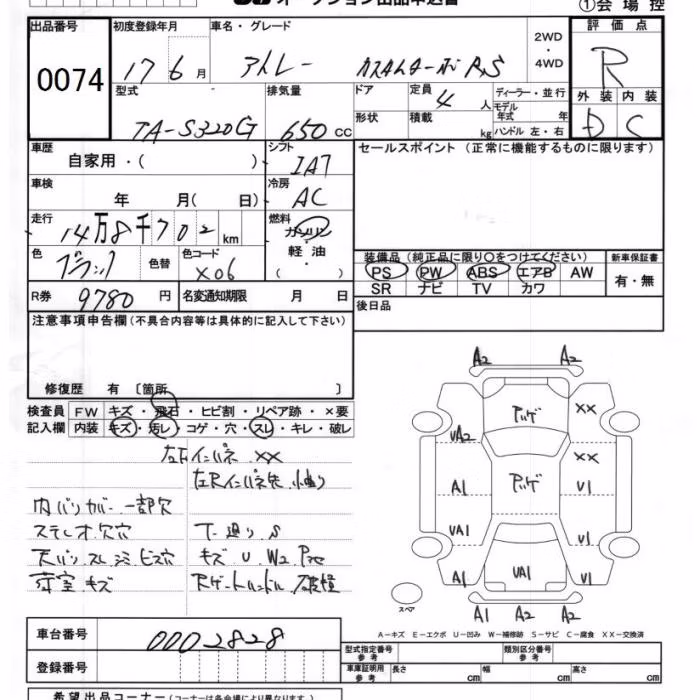 ①会場控
出品番号 初度登録年月 車名・グレード 評価点
0074
17 6月 アトレー カスタムターボRS 2WD ・ 4WD R
型式 排気量 ドア 定員 ディーラー・並行 外装 内装
4人 モデル年式 年 D C
TA-S320G 650cc 形状 積載 kg ハンドル 左・右
車歴 シフト セールスポイント(正常に機能するものに限ります)
自家用・( ) IA7
車検 冷房
年 月( 日) AC
走行 燃料
14万8千702km ガソリン
色 色替 色コード 軽油 装備品(純正品に限り○をつけてください) 新車保証書
ブラック X06 ( ) PS PW ABS エアB AW 有・無
SR ナビ TV カワ
R券 9780円 名変通知期限 月 日 後日品
注意事項申告欄(不具合内容等は具体的に記入して下さい)
修復歴 有〔箇所 〕
検査員 FW キズ・飛石・ヒビ割・リペア跡・×要
記入欄 内装 キズ・汚レ・コゲ・穴・スレ・キレ・破レ
左Fインパネ XX
左Rインパネ先
内バリ カバー 一部欠
ステレオ欠穴 下廻りS
天バリスレシミビス穴 キズ U W2
荷室キズ Rゲートハンドル破損
A2 A2
XX
UA2 XX
A1 U1
UA1 U1
A1 UA1 U1
スペア
A1 A2 A2
A-キズ E-エクボ U-凹み W-補修跡 S-サビ C-腐食 XX-交換済
車台番号 0002828
登録番号
型式指定番号 参考 類別区分番号 参考
車庫証明用 参考 長さ cm 幅 cm 高さ cm
希望出品コーナー